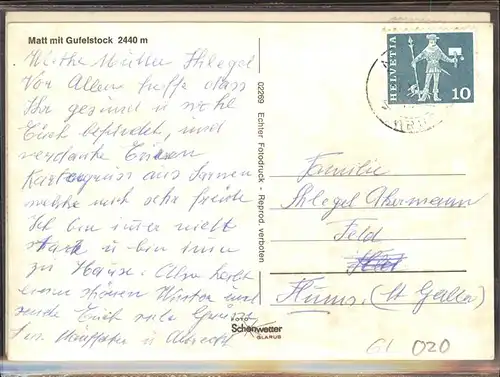 Matt mit Gufelstock 2440 m
Werthe Mutter Schlegel
Vor Allem hoffe dass
Ihr gesund u wohl
Euch befindet, und
verdanke Euren
Kartengruss aus Sarnen
welche mich sehr freute
Ich bin immer nicht
stark u bin immer
zu Hause. Also habt
einen schönen Winter und
sende Euch viele Grüsse
02269 Echter Fotodruck - Reprod. verboten
FOTO
Schönwetter
GLARUS
HELVETIA
10
Familie
Schlegel Ackermann
Feld
Flums (St Gallen)
G1 020